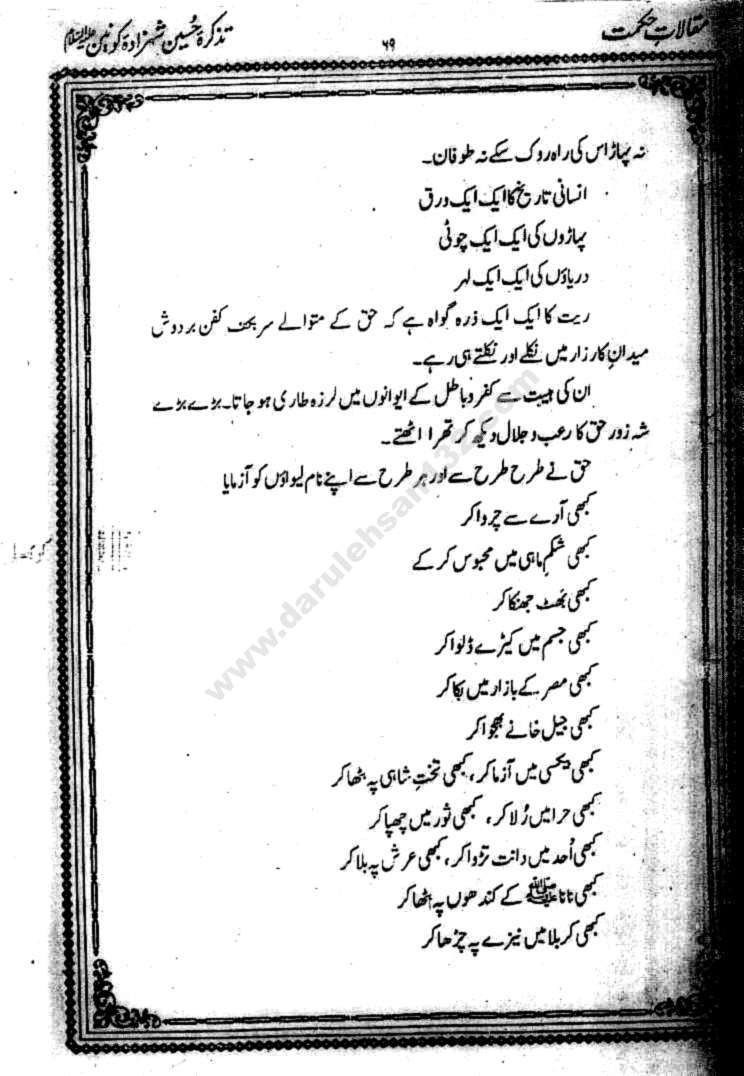 مقالاتِ حکمت
۶۹
تذکرۂ حُسین شہزادۂ کونین علیہ السلام
نہ پہاڑ اس کی راہ روک سکے نہ طوفان۔
انسانی تاریخ کا ایک ایک ورق
پہاڑوں کی ایک ایک چوٹی
دریاؤں کی ایک ایک لہر
ریت کا ایک ایک ذرہ گواہ ہے کہ حق کے متوالے سربکف کفن بردوش
میدانِ کارزار میں نکلے اور نکلتے ہی رہے۔
ان کی ہیبت سے کفر و باطل کے ایوانوں میں لرزہ طاری ہو جاتا۔ بڑے بڑے
شہ زور حق کا رعب و جلال دیکھ کر تھرا اٹھتے۔
حق نے طرح طرح سے اور ہر طرح سے اپنے نام لیواؤں کو آزمایا
کبھی آرے سے چروا کر
کبھی شکمِ ماہی میں محبوس کر کے
کبھی بھٹ جھنکا کر
کبھی جسم میں کیڑے ڈلوا کر
کبھی مصر کے بازار میں بکا کر
کبھی جیل خانے بھجوا کر
کبھی بیکسی میں آزما کر، کبھی تختِ شاہی پہ بٹھا کر
کبھی حرا میں رُلا کر، کبھی ثور میں چھپا کر
کبھی اُحد میں دانت تڑوا کر، کبھی عرش پہ بلا کر
کبھی نانا ﷺ کے کندھوں پہ اٹھا کر
کبھی کربلا میں نیزے پہ چڑھا کر
www.darulehsan132.com